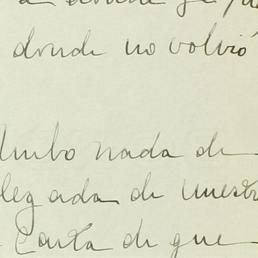 a donde
donde no volvió
hubo nada de
llegada de nuestr
Carta de que